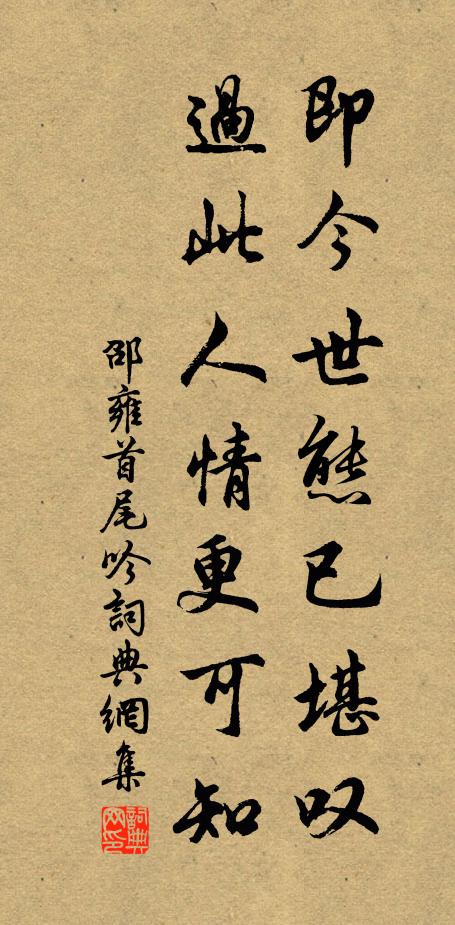 即今世態已堪叹
過此人情更可知
邵雍首尾吟詞典網集
詞典网印